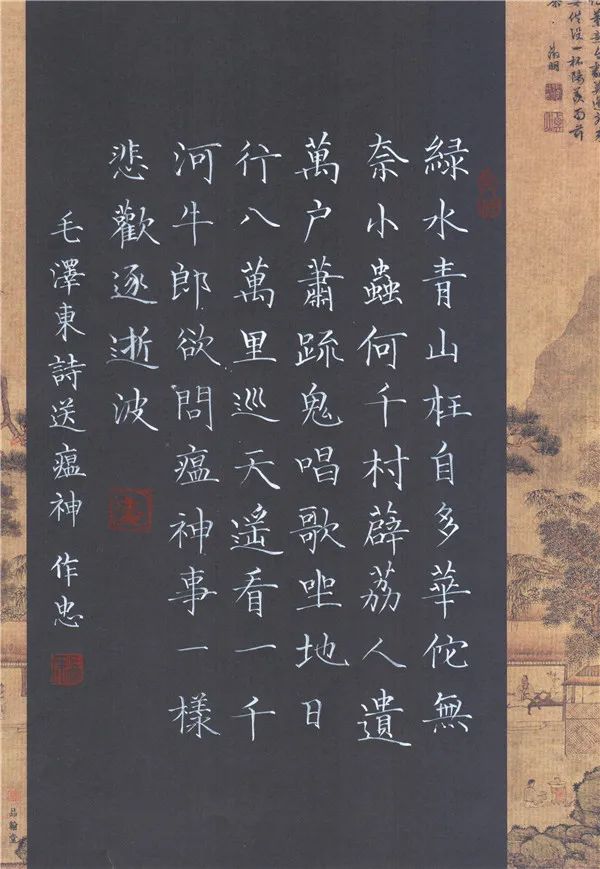 徵明
緑水青山枉自多華佗無
奈小蟲何千村薜荔人遺
萬户蕭疏鬼唱歌坐地日
行八萬里巡天遥看一千
河牛郎欲問瘟神事一樣
悲歡逐逝波
毛澤東詩送瘟神 作忠
品翰堂